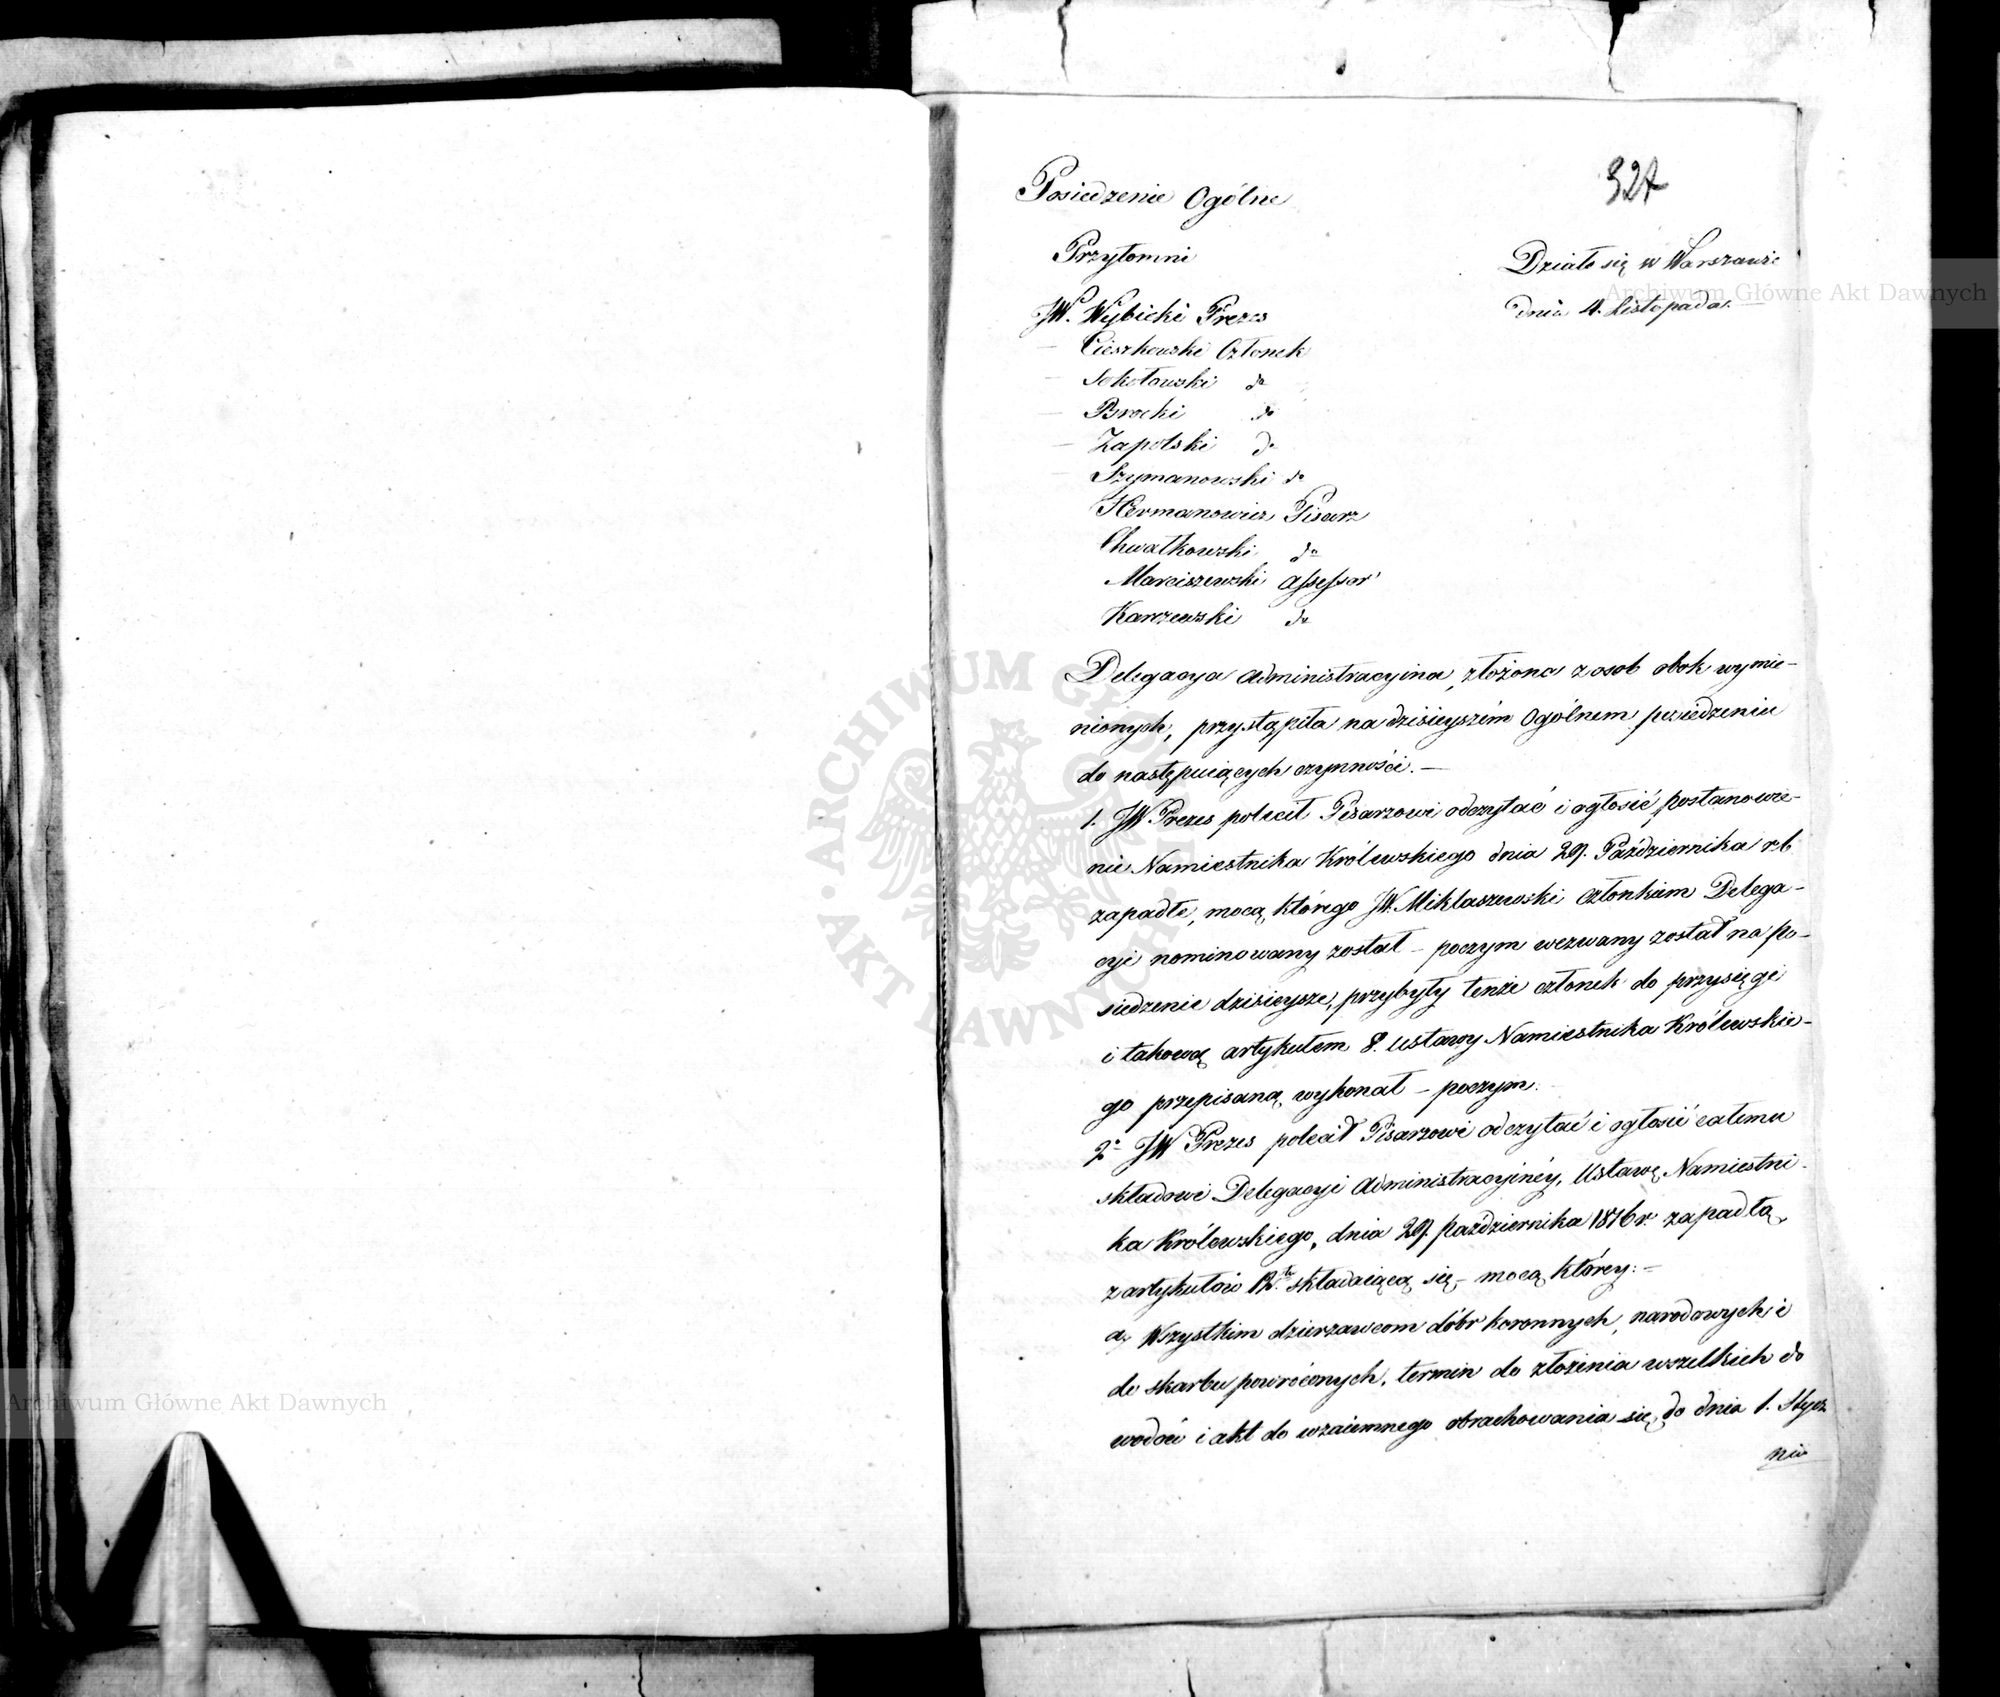 Posiedzenie Ogólne
327
Przytomni
Działo się w Warszawie
dnia 4. Listopada.
JW. Wybicki Prezes
— Cieszkowski Członek
— Sokołowski do
— Brocki do
— Zapolski do
— Szymanowski do
Hermanowicz Pisarz
Chwatkowski do
Marciszewski Assessor
Karczewski do
Delegacya Administracyina, złożona z osob obok wymie-
nionych, przystąpiła na dzisieyszém Ogólnem posiedzeniu
do następuiących czynności. —
1. JW Prezes polecił Pisarzowi odczytać i ogłosić postanowie-
nie Namiestnika Królewskiego dnia 29. Października r.b
zapadłe, mocą którego JW. Miklaszewski Członkiem Delega-
cyi nominowany został – poczym wezwany został na po-
siedzenie dzisieysze, przybyły tenże członek do przysięgi
i takową artykułem 8. ustawy Namiestnika Królewskie-
go przepisaną, wykonał – poczym:
2o JW Prezes polecił Pisarzowi odczytać i ogłosić całemu
składowi Delegacyi Administracyinéy, Ustawę Namiestni-
ka Królewskiego, dnia 29. października 1816 r. zapadłą,
z artykułów 12.tu składaiącą się – mocą którey: —
a, Wszystkim dzierzawcom dóbr koronnych, narodowych i
do skarbu powróconych, termin do złożenia wszelkich do
wodów i akt do wzaiemnego obrachowania się, do dnia 1. Stycz
nia
Archiwum Główne Akt Dawnych
Archiwum Główne Akt Dawnych
ARCHIWUM GŁÓWNE
AKT DAWNYCH